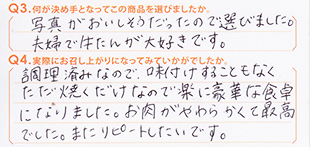 Q3.何が決め手となってこの商品を選びましたか。
写真がおいしそうだったので選びました。
夫婦で牛たんが大好きです。
Q4.実際にお召し上がりになってみていかがでしたか。
調理済みなので、味付けすることもなく
ただ焼くだけなので楽に豪華な食卓
になりました。お肉がやわらかくて最高
でした。またリピートしたいです。